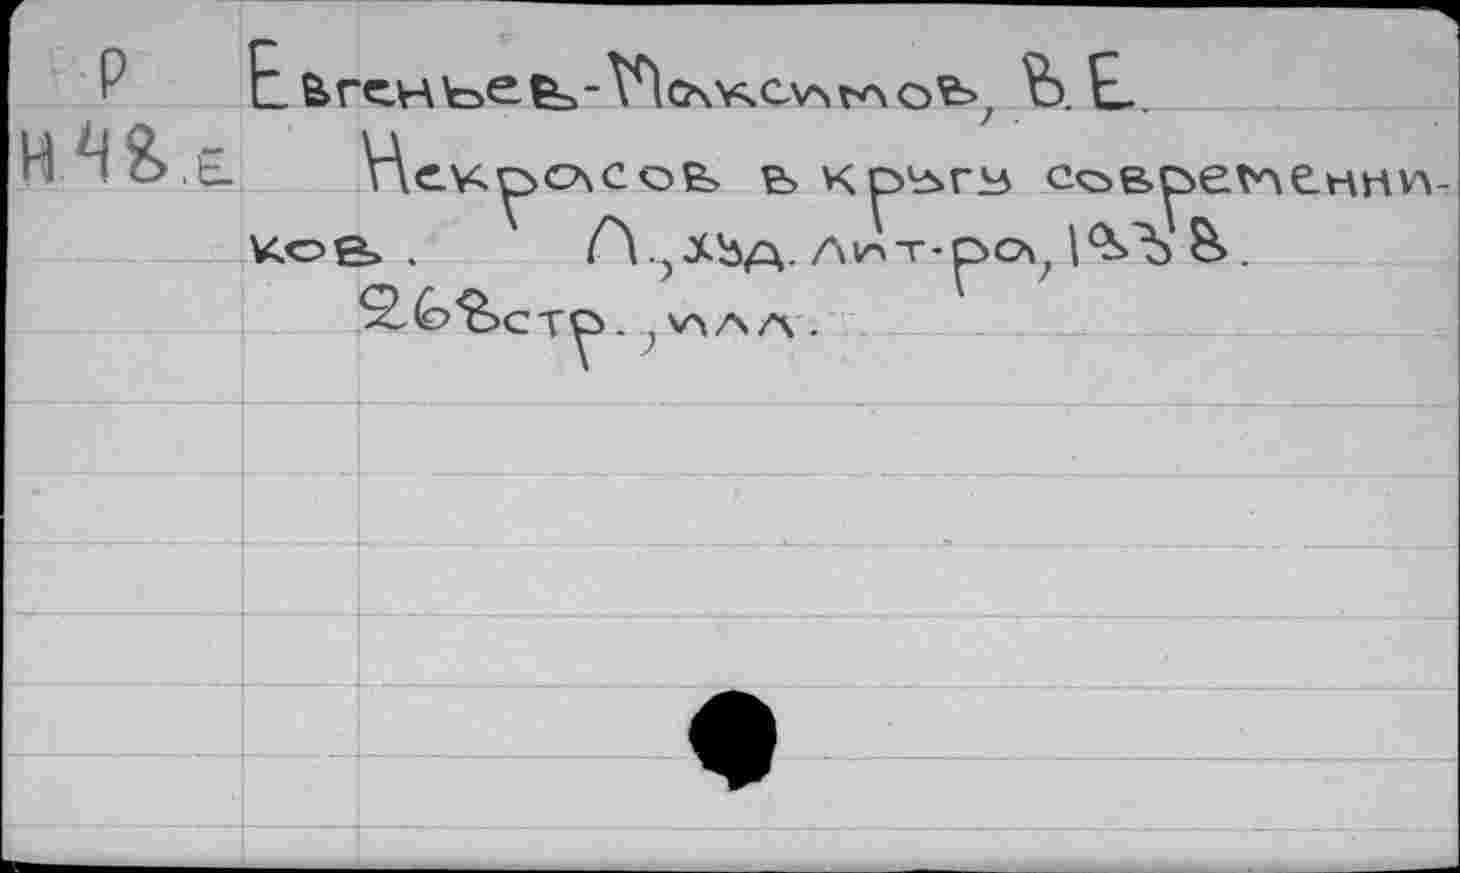 Р Евгеньев-Максимов, В. Е.
Н48.Е Некрасов в кругу современни-
ков. Л., худ. лит-ра, 1938.
268 стр., илл.